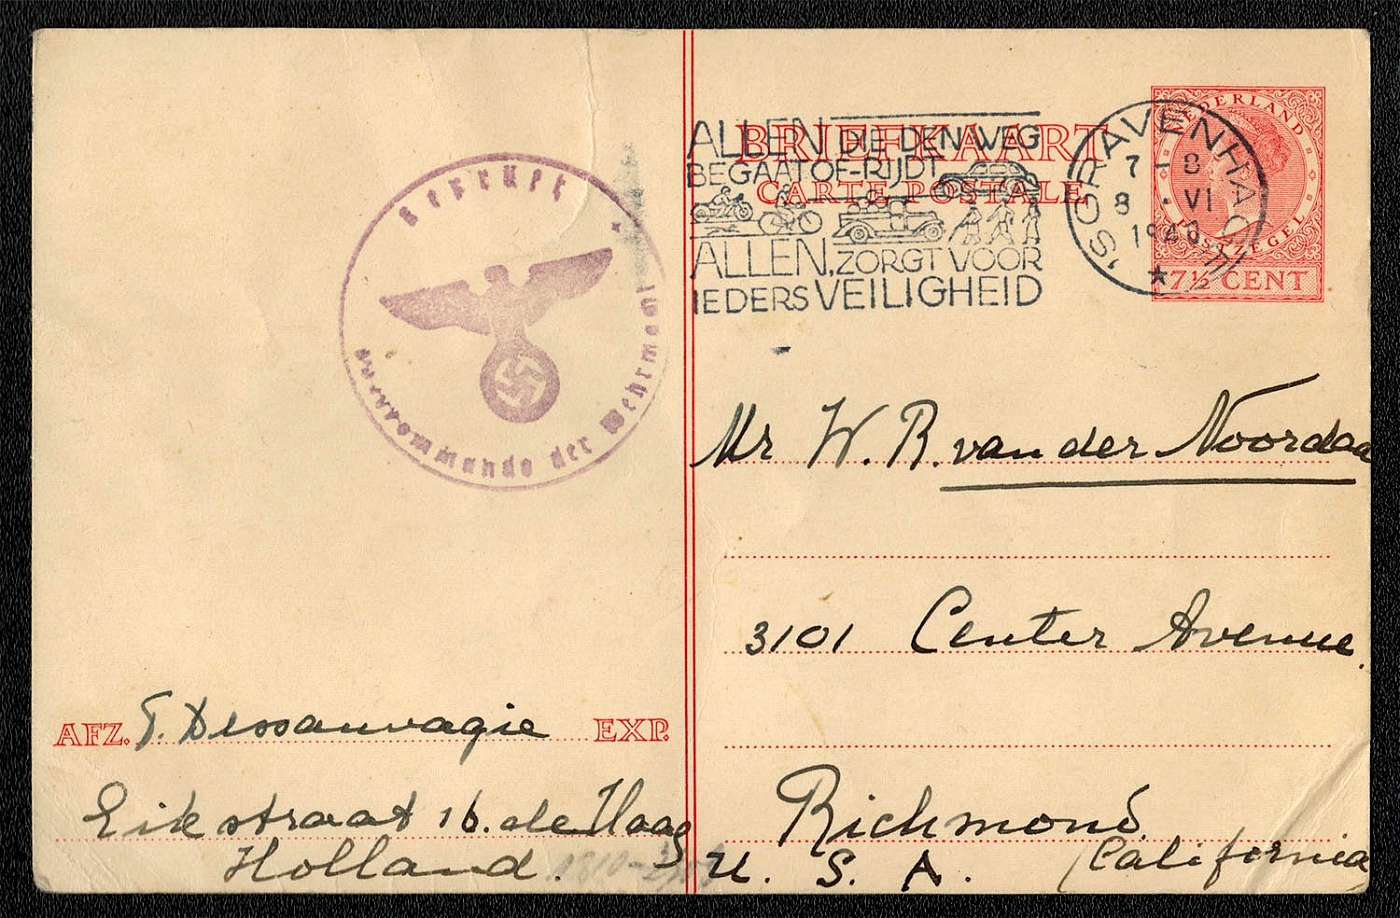 Geprüft
Oberkommando der Wehrmacht
AFZ. T. Dessauvagie EXP.
Eikstraat 16. de Haag
Holland.
BRIEFKAART
CARTE POSTALE
ALLEN DIE DEN WEG
BEGAAT OF-RIJDT
ALLEN, ZORGT VOOR
IEDERS VEILIGHEID
'SGRAVENHAGE
7 - 8
8 · VI
1940
NEDERLAND
POSTZEGEL
7½ CENT
Mr W. R. van der Noordaa
3101 Center Avenue.
Richmond
U. S. A. (California